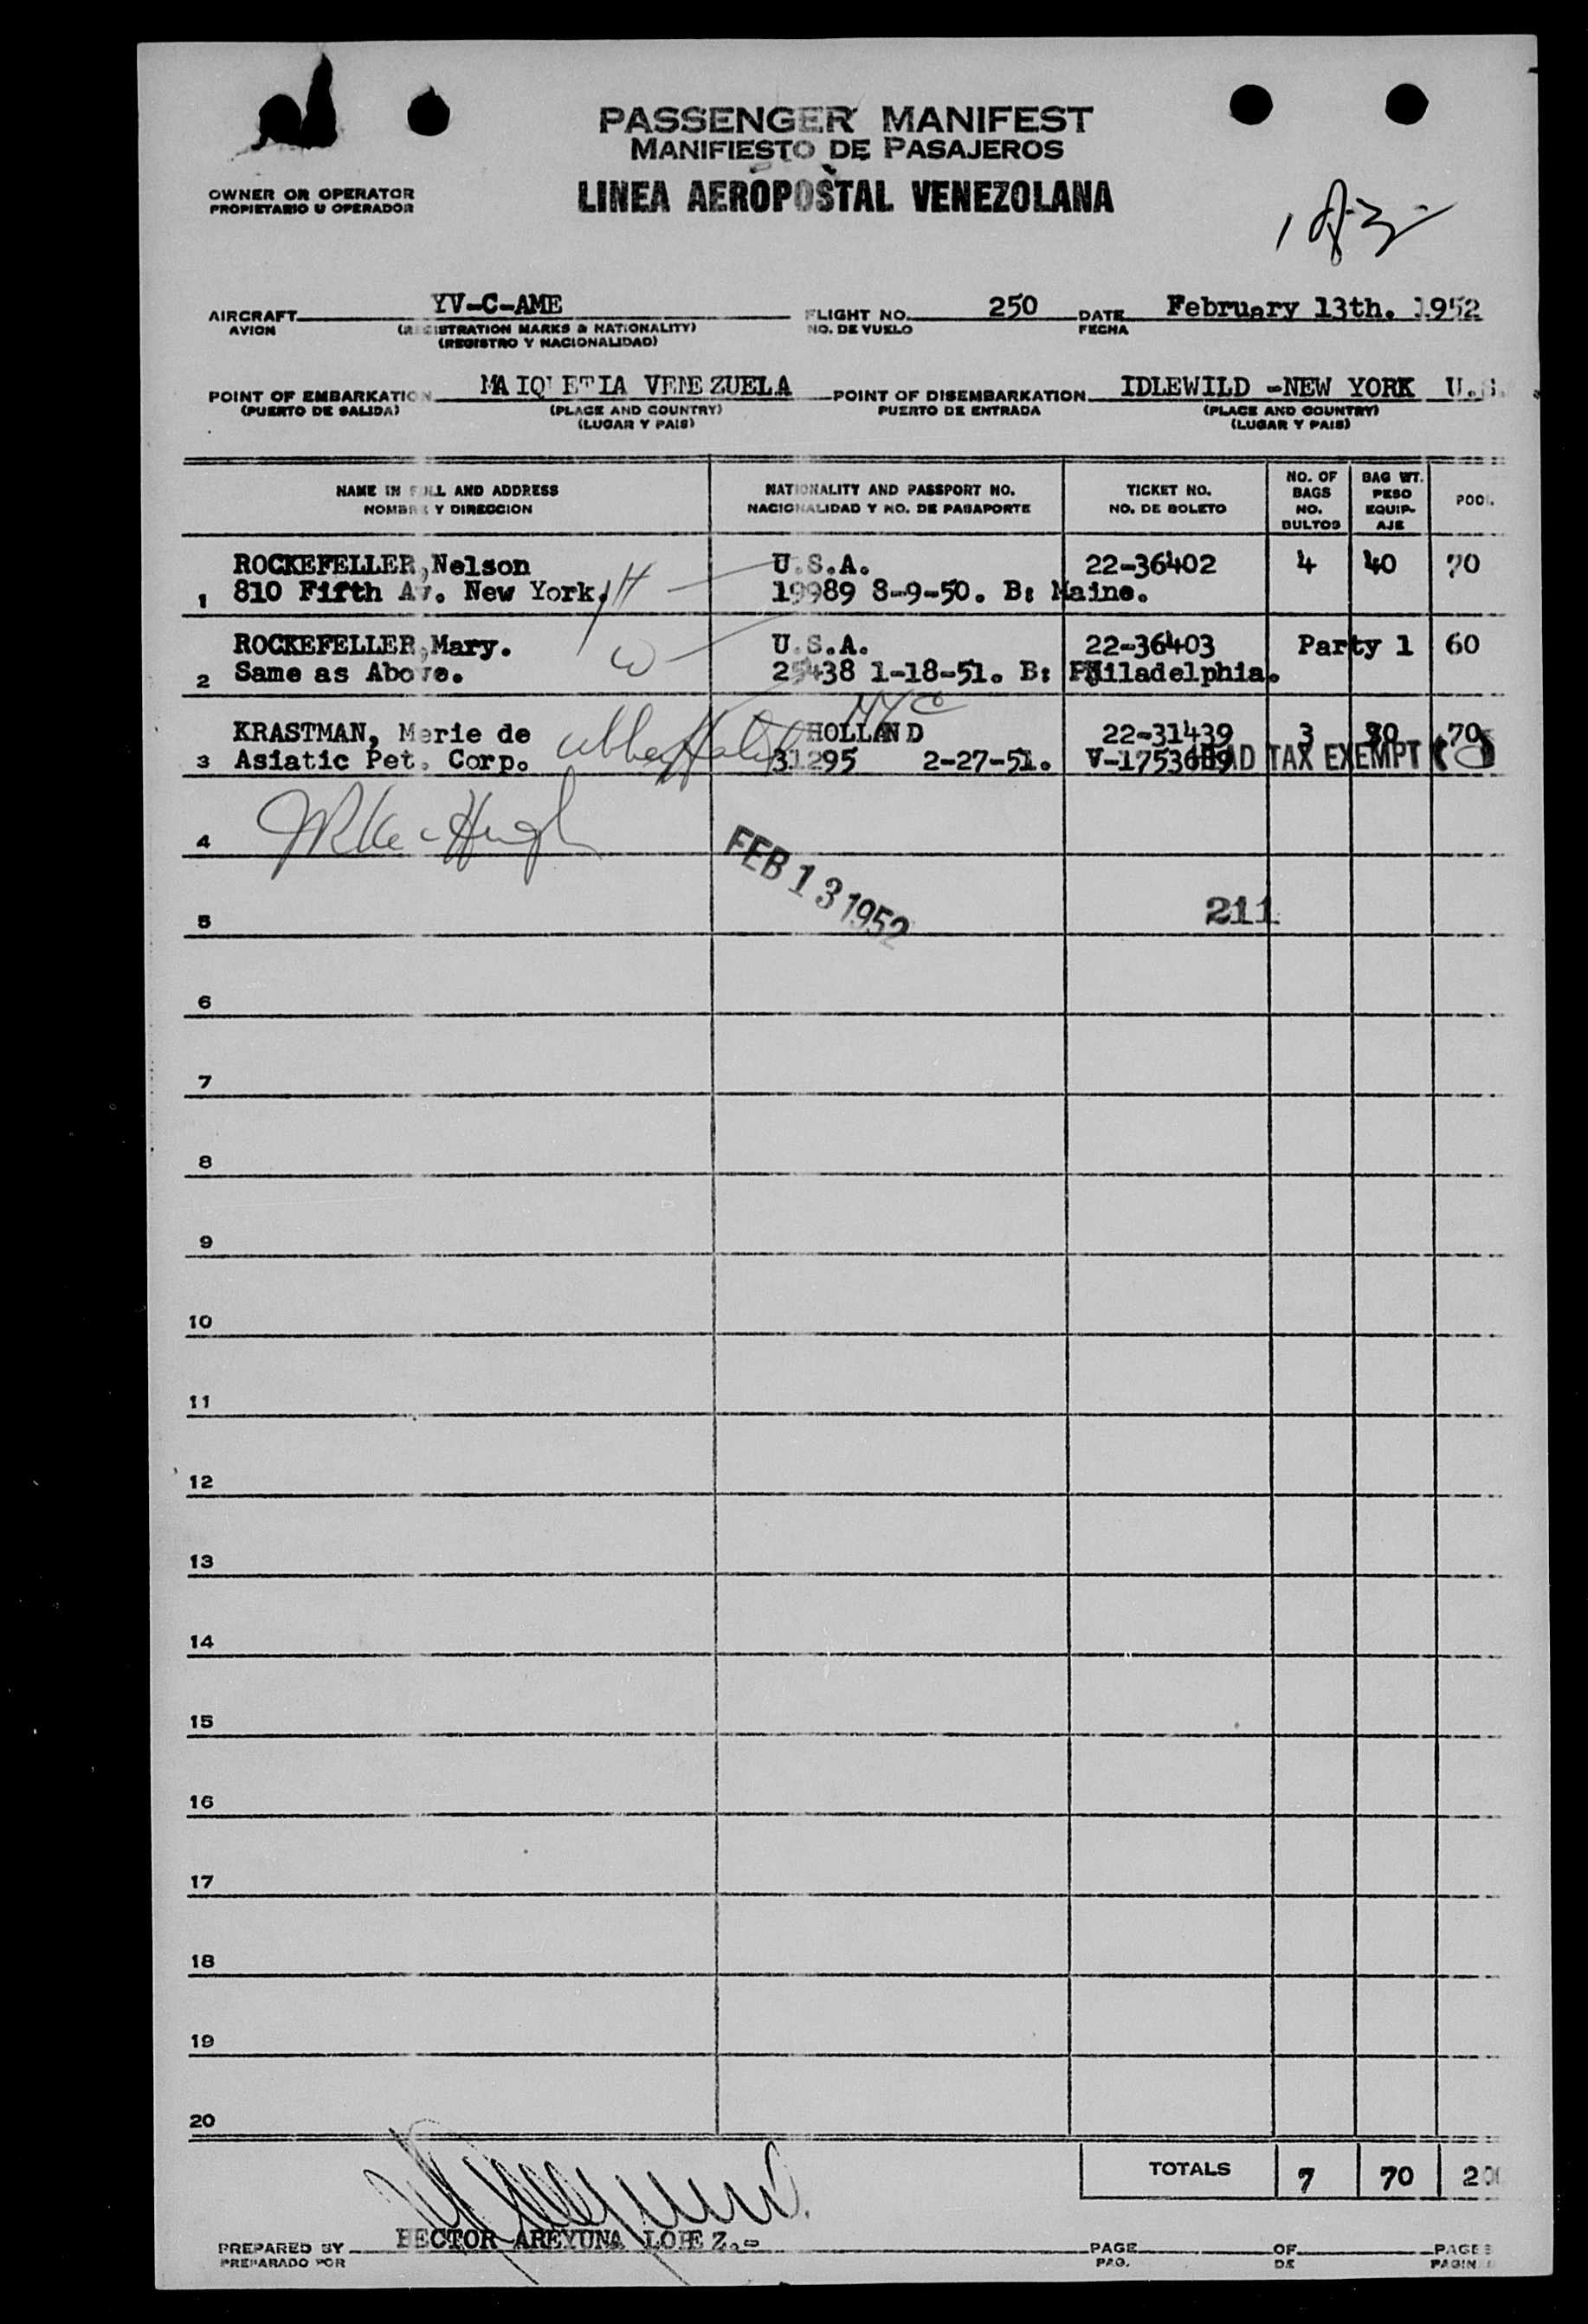 PASSENGER MANIFEST
MANIFIESTO DE PASAJEROS
OWNER OR OPERATOR
PROPIETARIO U OPERADOR
LINEA AEROPOSTAL VENEZOLANA
AIRCRAFT YV-C-AME FLIGHT NO. 250 DATE February 13th. 1952
AVION (REGISTRATION MARKS & NATIONALITY) NO. DE VUELO FECHA
(REGISTRO Y NACIONALIDAD)
POINT OF EMBARKATION MAIQUETIA VENEZUELA POINT OF DISEMBARKATION IDLEWILD -NEW YORK U.S.
(PUERTO DE SALIDA) (PLACE AND COUNTRY) PUERTO DE ENTRADA (PLACE AND COUNTRY)
(LUGAR Y PAIS) (LUGAR Y PAIS)
NAME IN FULL AND ADDRESS
NOMBRE Y DIRECCION
NATIONALITY AND PASSPORT NO.
NACIONALIDAD Y NO. DE PASAPORTE
TICKET NO.
NO. DE BOLETO
NO. OF
BAGS
NO.
BULTOS
BAG WT.
PESO
EQUIP-
AJE
POOL
ROCKEFELLER,Nelson U.S.A. 22-36402 4 40 70
1 810 Fifth Av. New York. H 19989 8-9-50. B: Maine.
ROCKEFELLER,Mary. W U.S.A. 22-36403 Party 1 60
2 Same as Above. 25438 1-18-51. B: Philadelphia.
NYC
KRASTMAN, Merie de HOLLAND 22-31439 3 30 70
3 Asiatic Pet. Corp. 31295 2-27-51. V-1753689 HEAD TAX EXEMPT
4
FEB 13 1952
5 211
6
7
8
9
10
11
12
13
14
15
16
17
18
19
20
TOTALS 7 70 200
PREPARED BY HECTOR AREYUNA LOPEZ.- PAGE OF PAGES
PREPARADO POR PAG. DE PAGIN